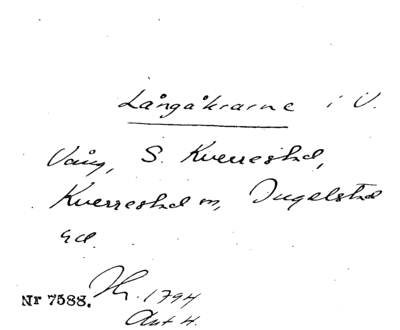 Långåkrarne i V.
Vång, S. Kverrestad,
Kverrestad sn, Ingelstad
hd.
Nr 7588. Hr. 1794
Akt 4.